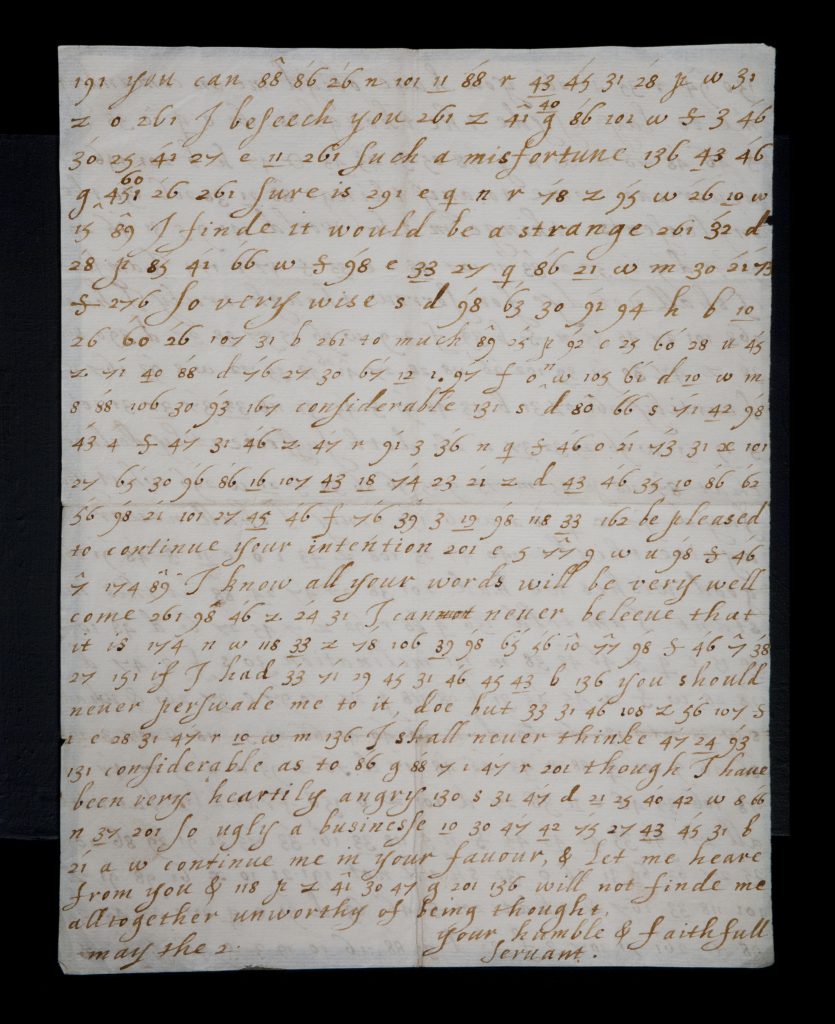 191 you can 88̂ 86 26 n 101 11 88 r 43 45 31 28 p w 31
z o 261 I beseech you 261 z 41 40 g 86 101 w & 3 46
30 25 41 27 e 11 261 such a misfortune 136 43 46
g 451 60 26 261 sure is 291 e q n r 78 z 95 w 26 10 w
15 89̂ I finde it would be a strange 261 32 d
28 p 85 41 66 w & 98 e 33 27 q 86 21 w m 30 21 73
& 276 so very wise s d 98 63 30 91 94 h b 10
26 60 26 107 31 b 261 to much 89̂ 25 p 92 e 25 60 28 u 45
z 71 40 88 d 76 27 30 67 12 1 97 f o n w 105 61 d 10 w m
s 88 106 30 93 167 considerable 131 s d 80̂ 66 s 71 42 98
43 4 & 47 31 46 z 47 r 91 3 36 n q & 46 o 21 73 31 x 101
27 65 30 96 86 16 107 43 18 74 23 21 z d 43 46 35 10 86 62
56 98 21 101 27 45 46 f 76 39 3 19 98 118 33 162 be pleased
to continue your intention 201 e 5 77̂ 9 w u 98 & 46
7̂ 174 89̂ I know all your words will be very well
come 261 98̂ 46 z 24 31 I can never beleeve that
it is 174 n w 118 33 z 78 106 39 98 65 56 10̂ 77̂ 98 & 46 7̂ 38
27 151 if I had 33 71 29 45 31 46 45 43 b 136 you should
never perswade me to it, doe but 33 31 46 108 z 56 107 &
e 28 31 47 r 10 w m 136 I shall never thinke 47 24 93
131 considerable as to 86 g 88 7 1 47 r 201 though I have
been very heartily angry 130 s 31 47 d 21 25 40 42 w 8 66
n 37 201 so ugly a businesse 10 30 47 42 75 27 43 45 31 b
21 a w continue me in your favour, & Let me heare
from you & 118 p z 41̂ 30 47 g 201 136 will not finde me
alltogether unworthy of being thought,
your humble & faithfull
may the 2. servant.